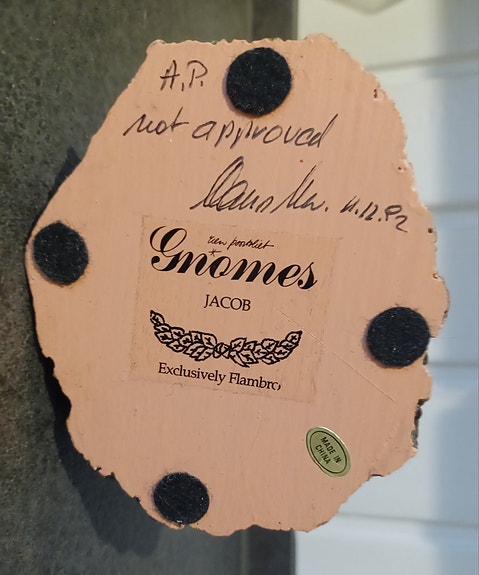 A.P.
not approved
11.12.92
Rien Poortvliet
Gnomes
JACOB
Exclusively Flambro
MADE IN
CHINA